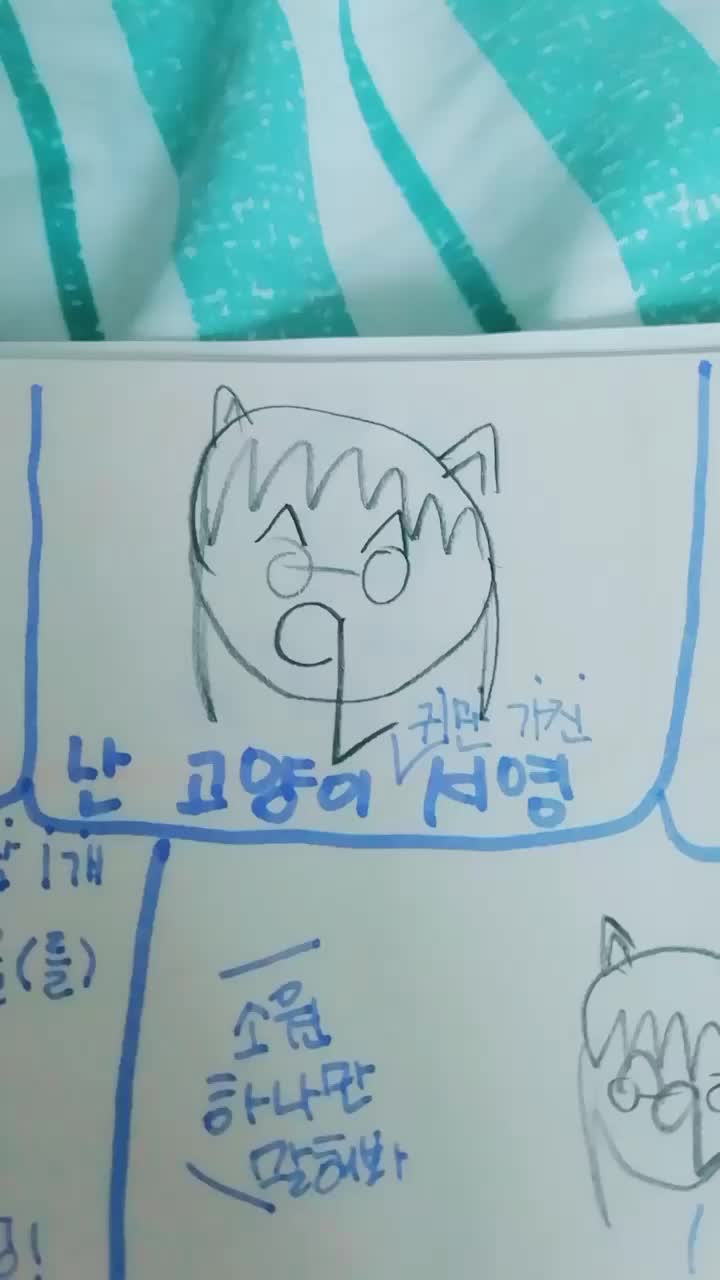 귀만 가진
난 고양이 서영
1개
(를)
소원
하나만
말해봐
!